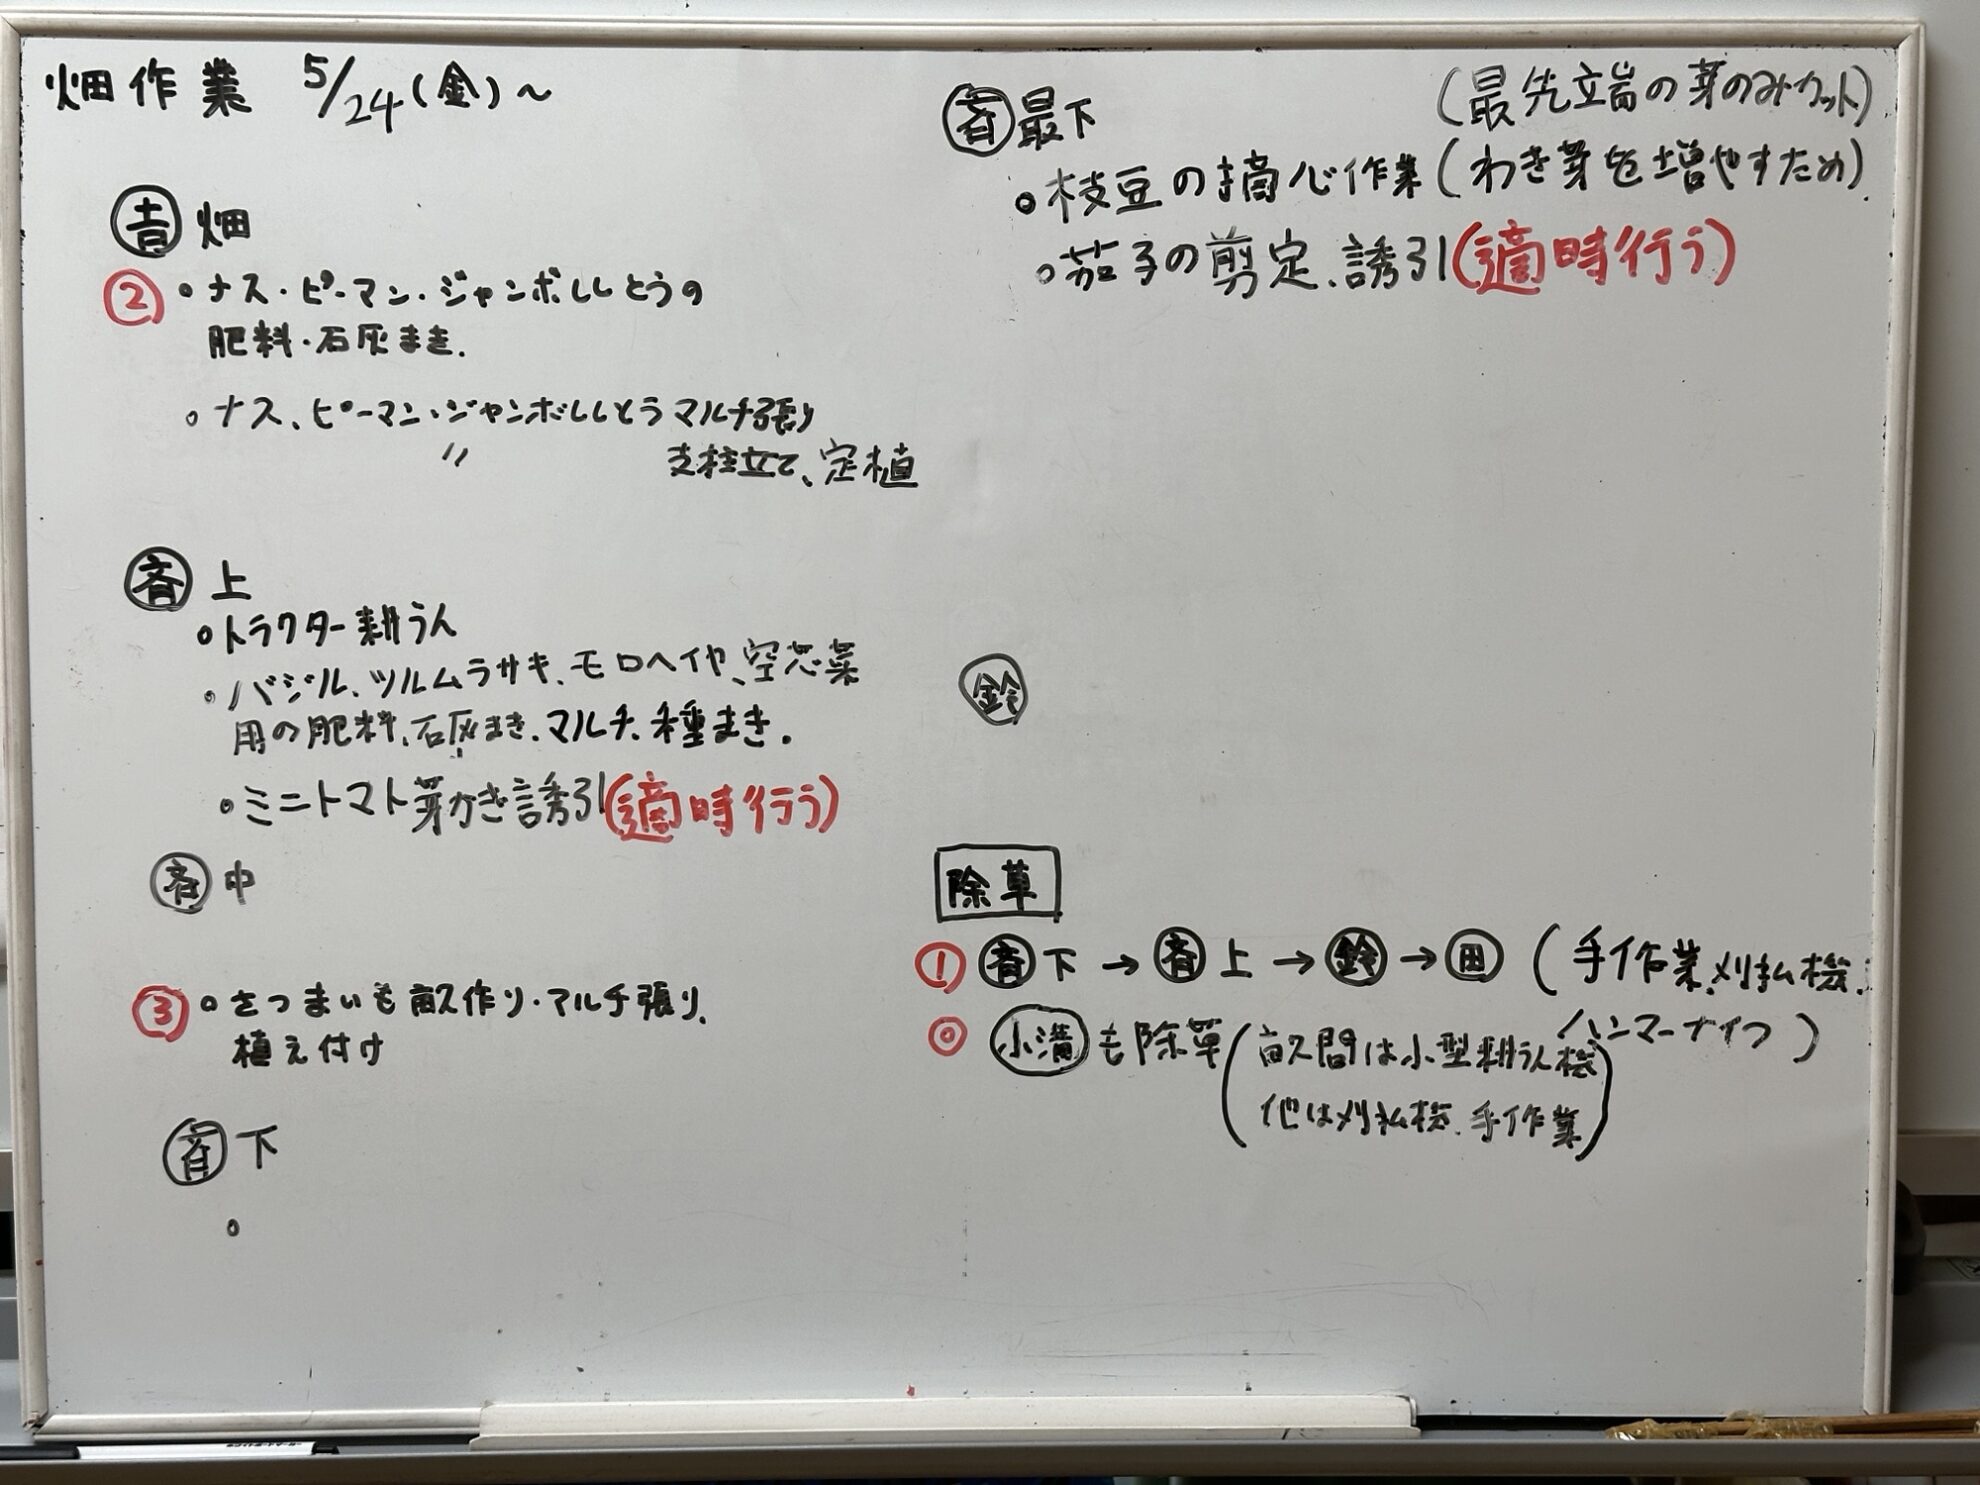 畑作業 5/24(金)~
吉 畑
② ○ナス・ピーマン・ジャンボししとうの
肥料・石灰まき.
○ナス、ピーマン・ジャンボししとうマルチ張り
〃 支柱立て、定植
斉 上
○トラクター耕うん
○バジル、ツルムラサキ、モロヘイヤ、空芯菜
用の肥料、石灰まき、マルチ、種まき.
○ミニトマト芽かき誘引(適時行う)
斉 中
③ ○さつまいも畝作り・マルチ張り、
植え付け
斉 下
○
斉 最下
(最先立耑の芽のみカット)
○枝豆の摘心作業(わき芽を増やすため)
○茄子の剪定、誘引(適時行う)
鈴
除草
① 斉下→斉上→鈴→田(手作業、刈払機、
ハンマーナイフ)
◎ 小溝も除草(畝間は小型耕うん機
他は刈払機、手作業)